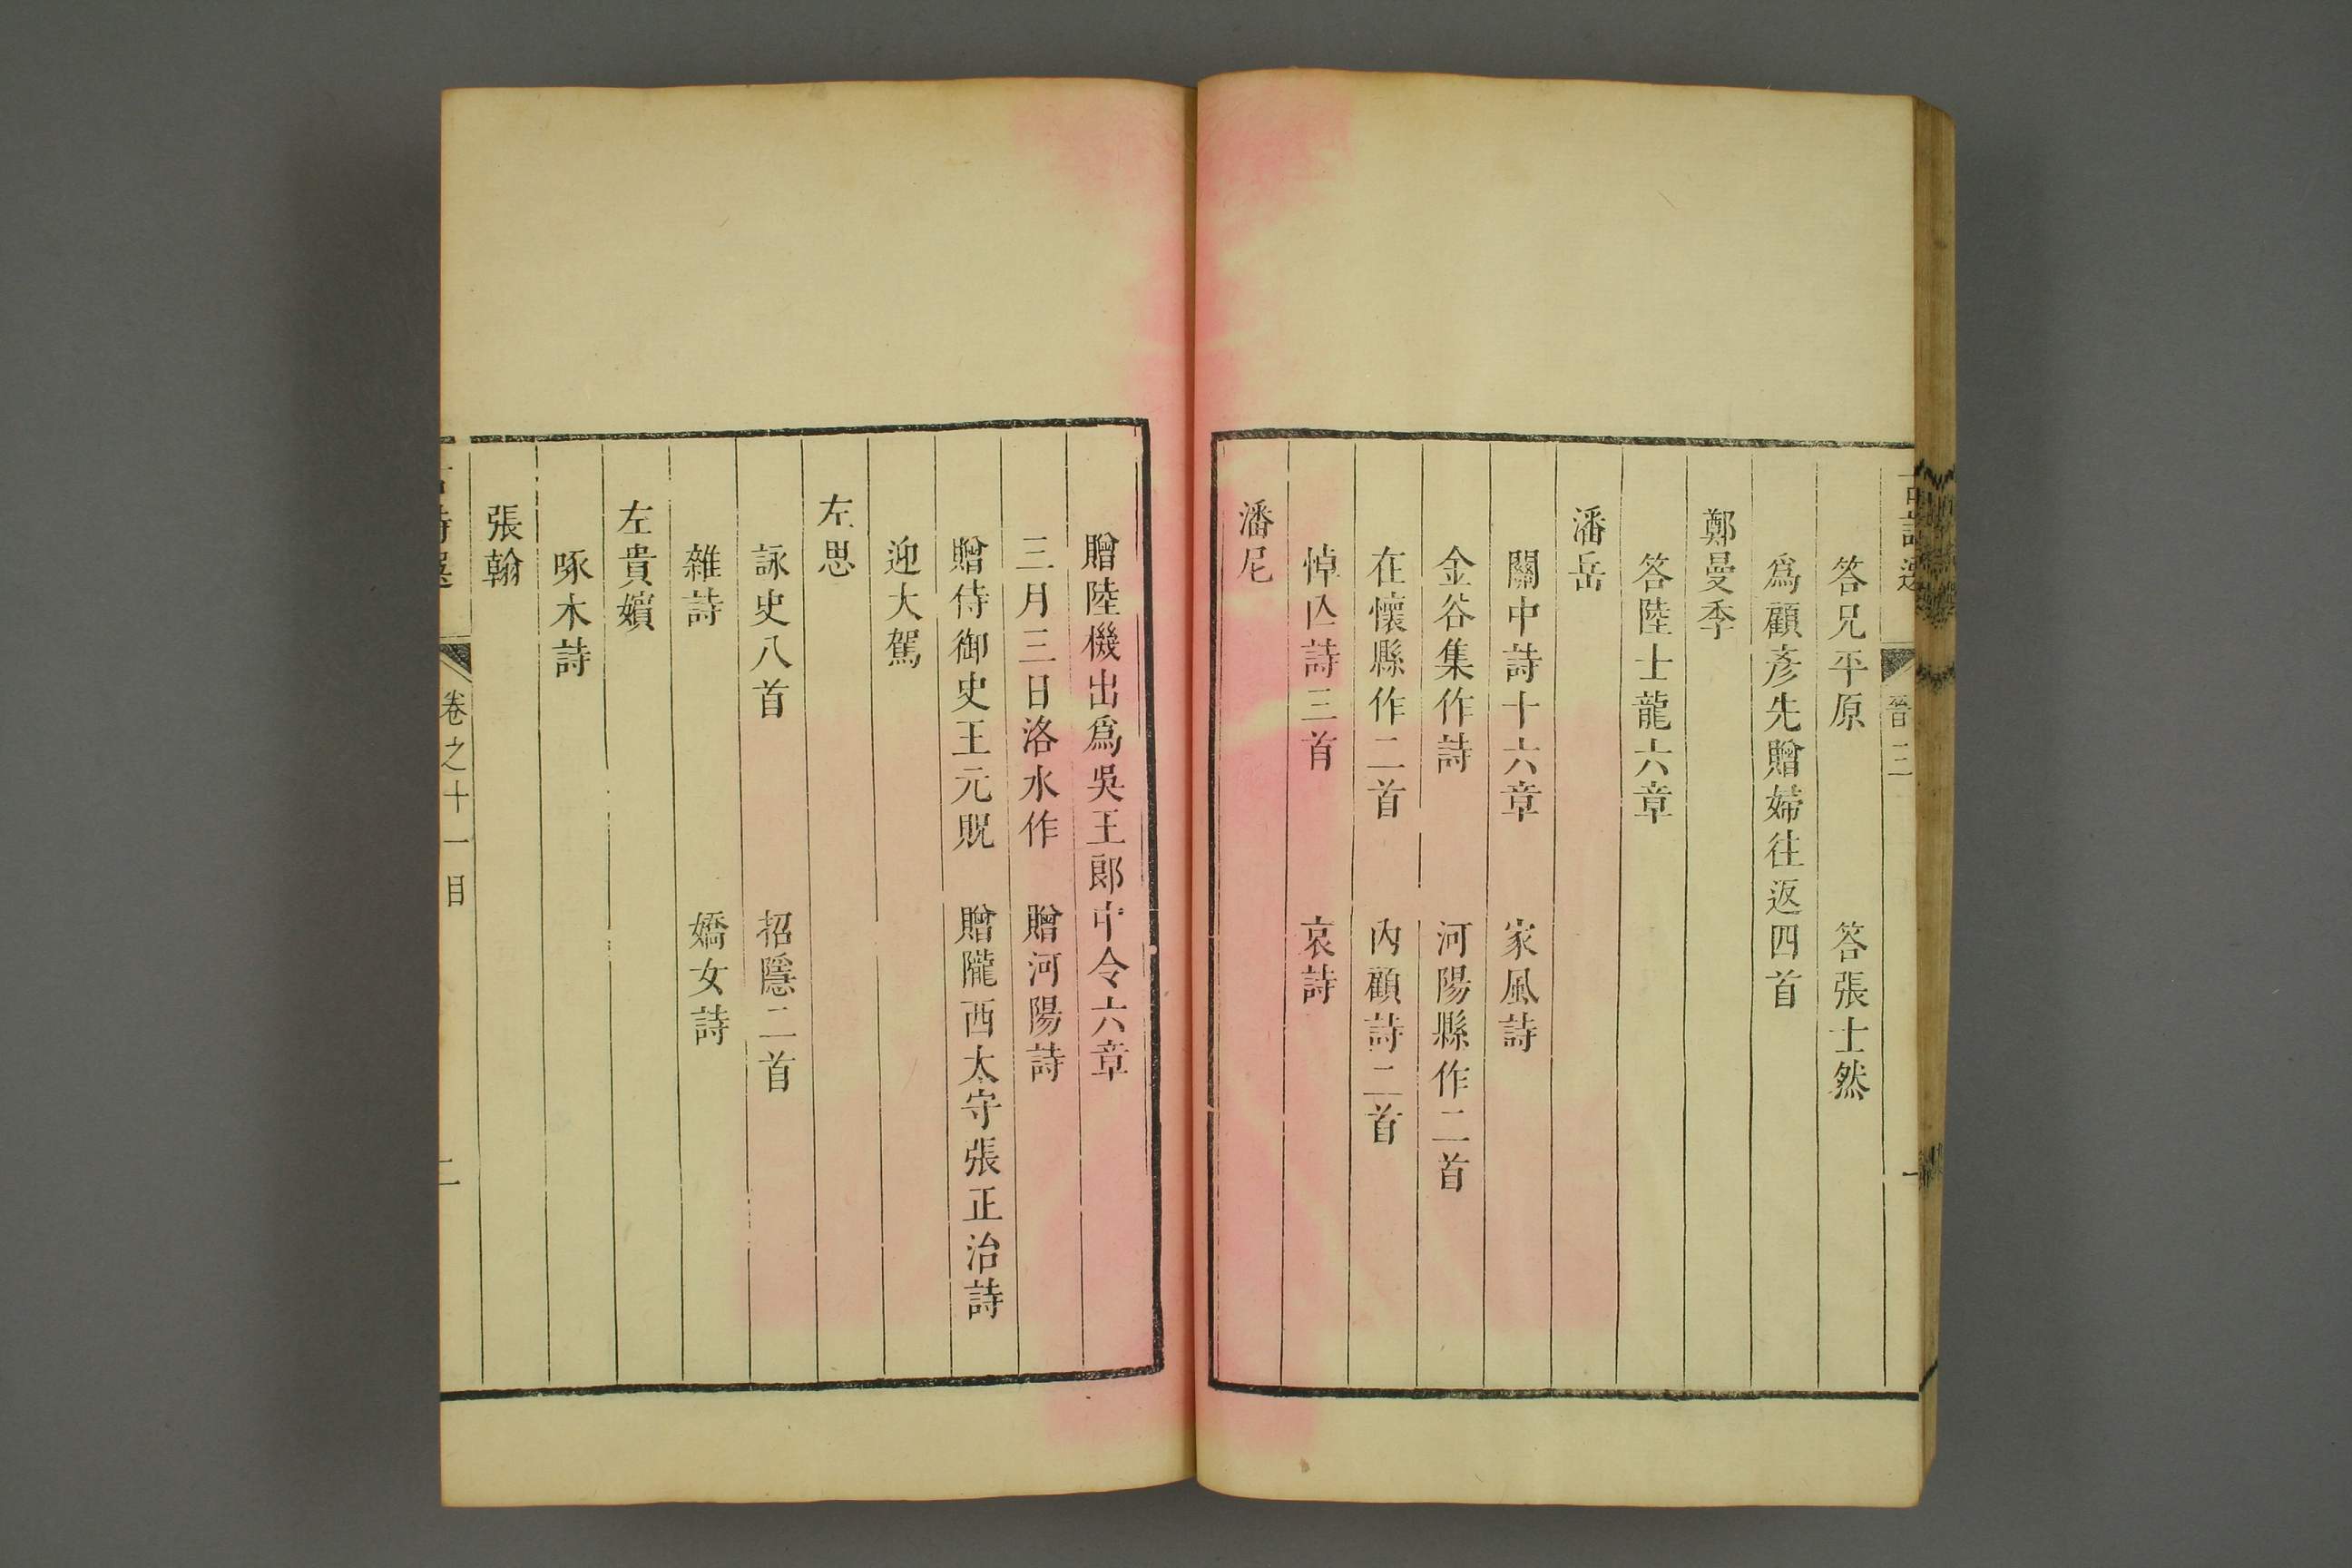 晉二
答兄平原　答張士然
爲顧彥先贈婦往返四首
鄭曼季
答陸士龍六章
潘岳
關中詩十六章　家風詩
金谷集作詩　河陽縣作二首
在懷縣作二首　內顧詩二首
悼亾詩三首　哀詩
潘尼
贈陸機出爲吳王郎中令六章
三月三日洛水作　贈河陽詩
贈侍御史王元貺　贈隴西太守張正治詩
迎大駕
左思
詠史八首　招隱二首
雜詩　嬌女詩
左貴嬪
啄木詩
張翰
卷之十一目　二